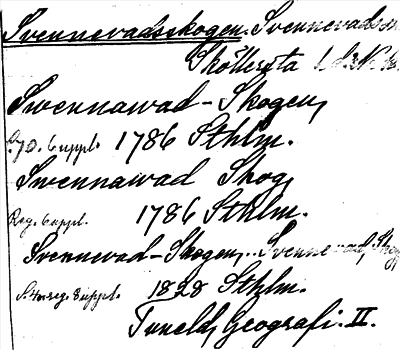 Svennevadsskogen. Svennevads
Sköllersta
Swennawad-Skogen,
uppl. 1786 Sthlm.
Swennawad Skog,
Reg. uppl. 1786 Sthlm.
Svennevad-Skogen, Svennevad, Skog
1828 Sthlm.
Tuneld, Geografi. II.